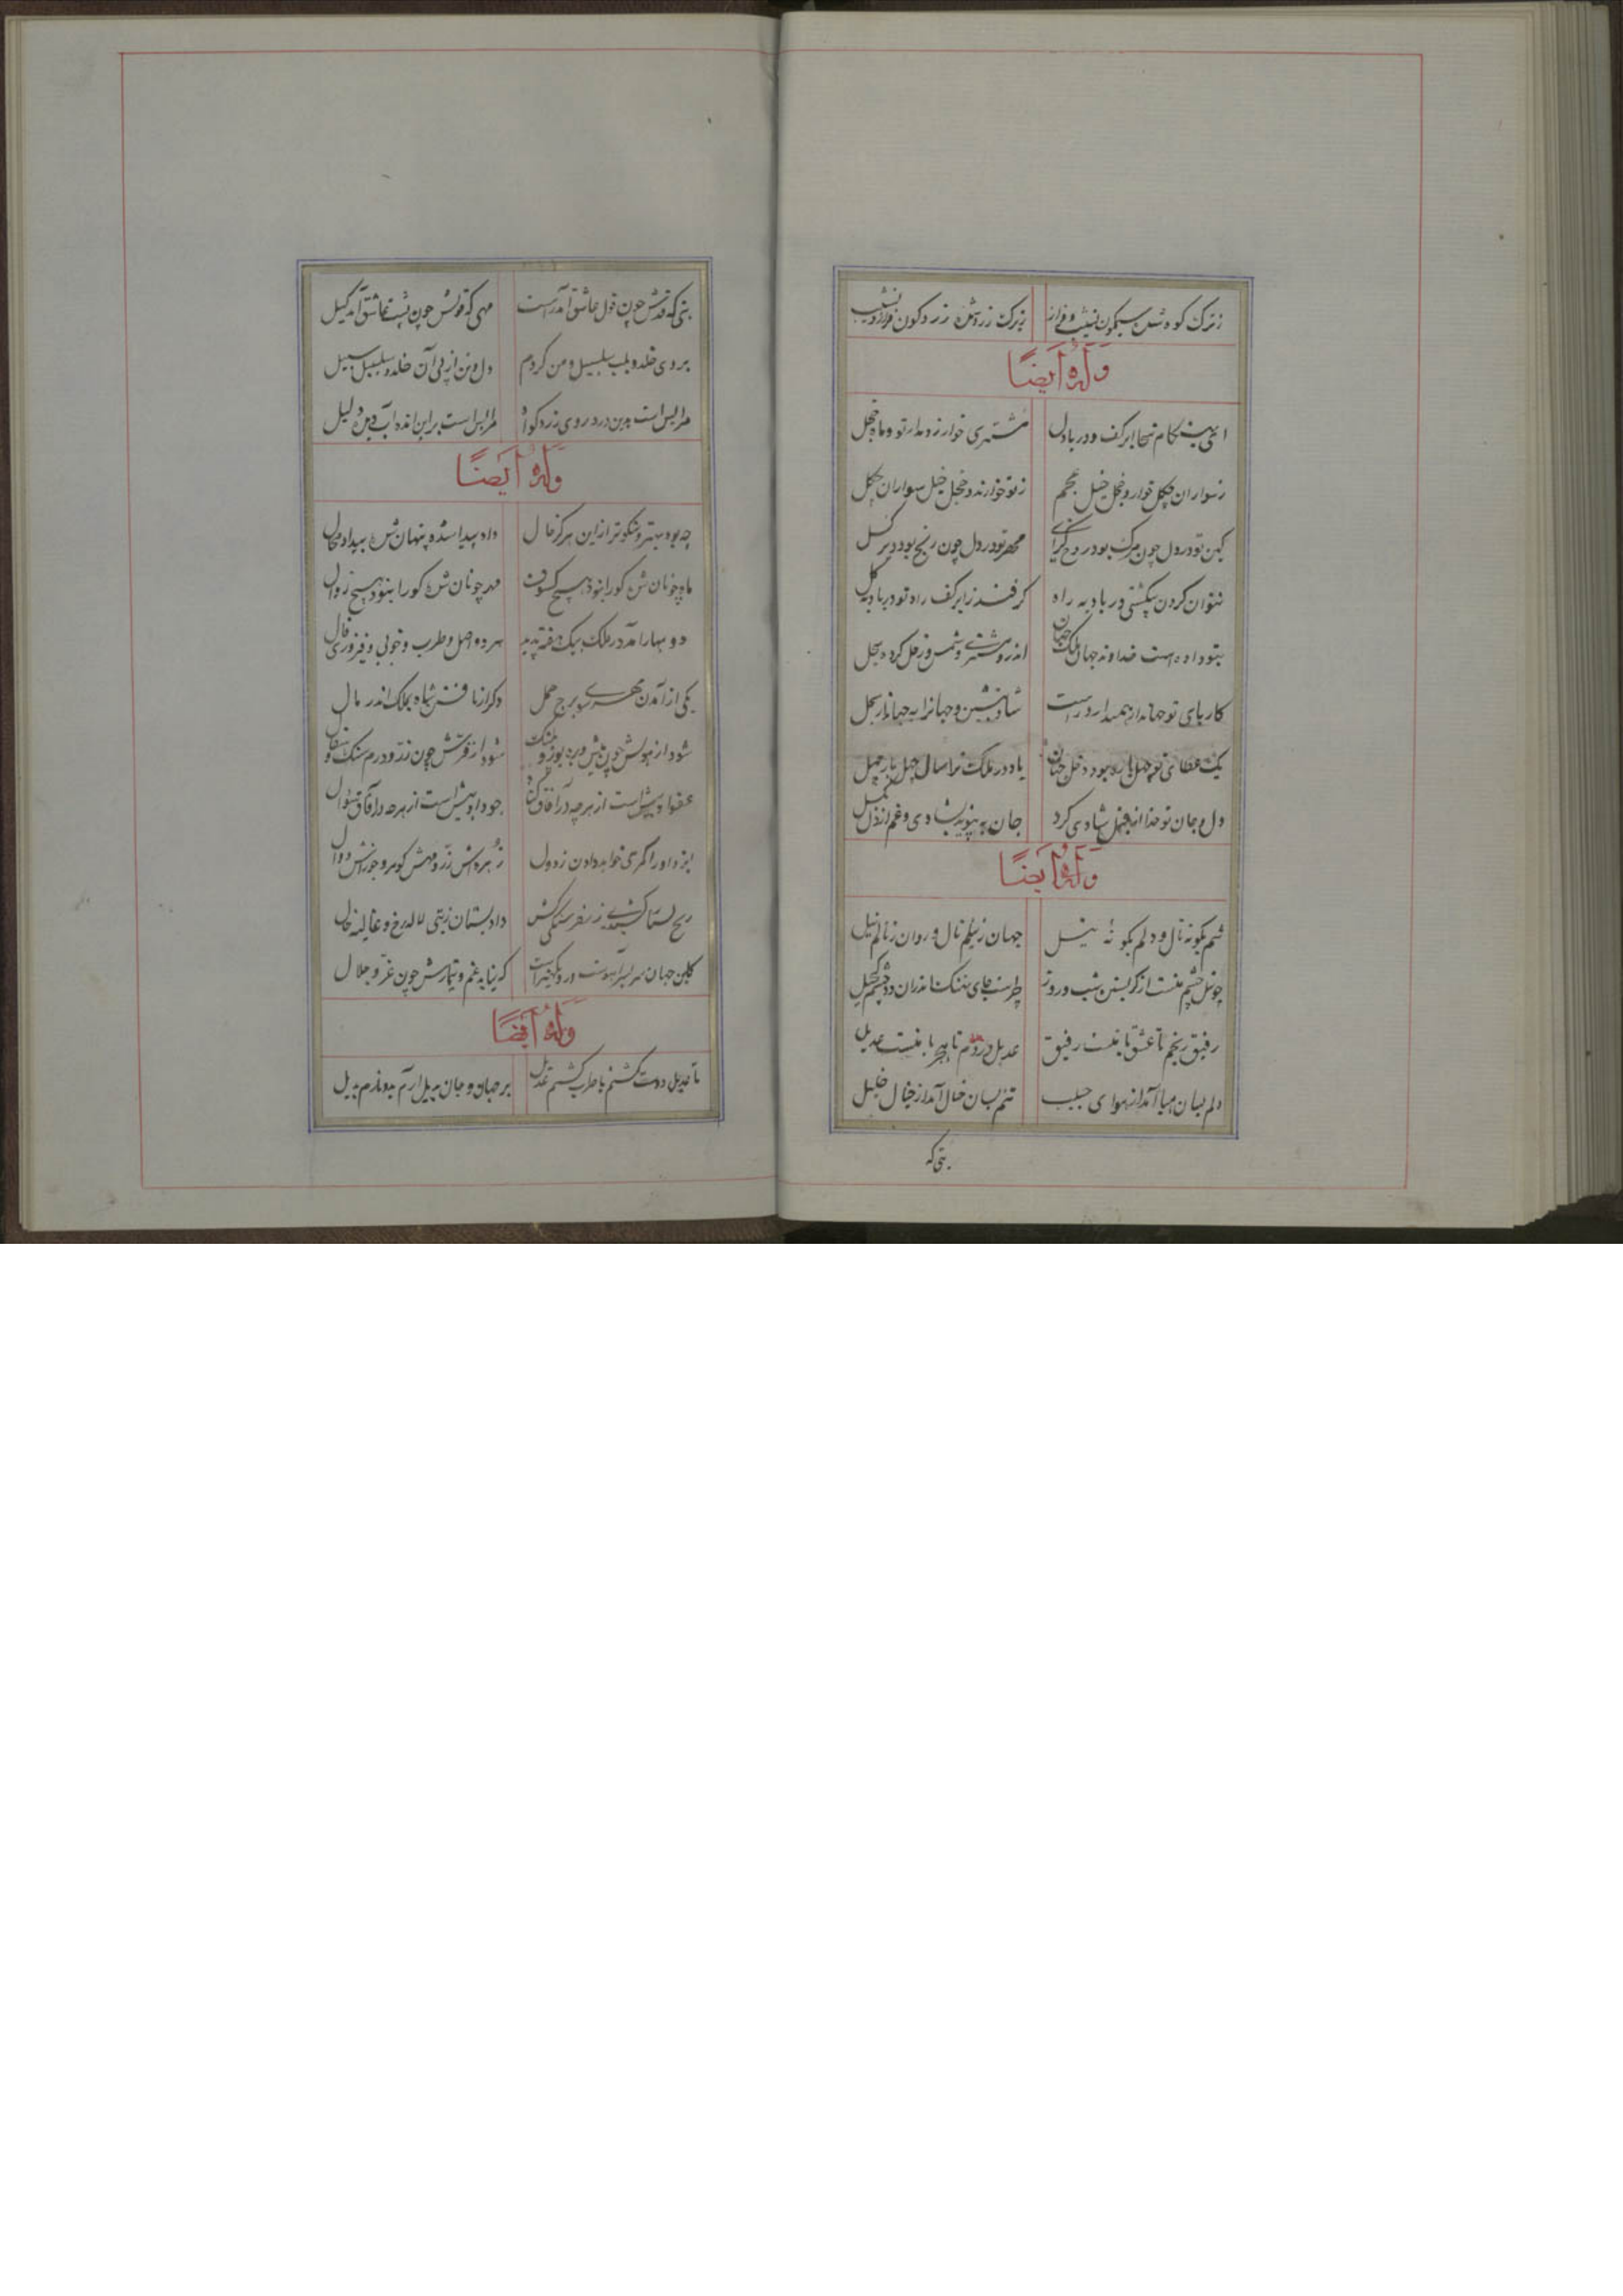 زبرک کوه شده سیمگون نشیب و فراز زبرک زر شده زردگون فراز و نشیب
وله ایضاً
ای بهنگام سخا ابر کف و دریا دل مشتری خوار ز دیدار تو و ماه خجل
ز سواران چگل خوار و خجل خیل عجم ز تو خوارند و خجل خیل سواران چگل
کین تو در دل چون مرگ بود روح گزای مهر تو در دل چون رنج بود دیر گسل
نتوان کردن بکشتی در بادیه راه گر فتد زابر کف راد تو در بادیه طل
بتو داده است خداوند جهان ملک جهان اندرو مشتری و شمس و زحل کرده سجل
کار بای تو جهاندار همیدارد راست شاد بنشین و جهانرا به جهاندار بحل
یک عطای تو چهل باره بود دخل جهان باد در ملکت ترا سال چهل بار چهل
دل و جان تو خدا از شادی کرد جان به شادی و غم از دل بگسل
وله ایضاً
تنم بگونه نال و دلم بگونه نیل جهان ز نیلم نال و روان ز نالم نیل
چو نیل چشم منست از گریستن شب و روز چراست جای نهنگ اندران دو چشم کحیل
رفیق رنجم تا عشق با منست رفیق عدیل دردم تا هجر با منست عدیل
دلم بسان هبا آمد از هوای حبیب تنم بسان خلال آمد از خیال خلیل
بتی که
بتی که قدش چون قول عاشق آمد راست مهی که قولش چون پشت عاشق آمد کیل
بروی خلد و بلب سلسبیل و من کردم دل و تن از پی آن خلد و سلسبیل سبیل
مرا بس است بدین درد روی زرد گواه مرا بس است بر این انده آب دیده دلیل
وله ایضاً
چه بود بهتر و نیکوتر از این هرگز حال داد پیدا شده پنهان شده بیداد و محال
ماه چونان شده کورا نبود هیچ کسوف مهر چونان شده کورا نبود هیچ زوال
دو بهار آمد در ملک بیک هفته پدید هر دو اصل طرب و خوبی و فیروزی فال
یکی از آمدن مهر سوی برج حمل دگر از رفتن شاه بملک اندر مال
شود از هولش چون پیش بره یوز و پلنگ شود از فرش چون زر و درم سنگ و سفال
عفو او بیش است از هرچه در آفاق گناه جود او بیش است از هرچه در آفاق سؤال
ایزد او را گهری خواهد دادن ز دول زهره اش زر و مهش گوهر و جوزاش دوال
رخ بستان گشتی داد بستان ز بتی لاله رخ و غالیه خال
که نیاید غم و تیمارش چون عز و جلال
وله ایضاً
تا بدیل دوست گشتم با طرب گشتم عدیل بر جهان و جان بدیل آرم بدو نارم بدیل